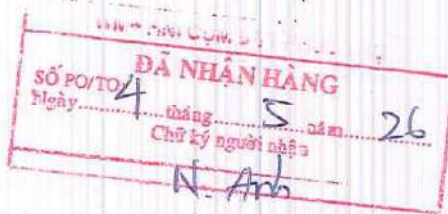 ĐÃ NHẬN HÀNG
SỐ PO/TO
Ngày 4 tháng 5 năm 26
Chữ ký người nhận
N. Anh